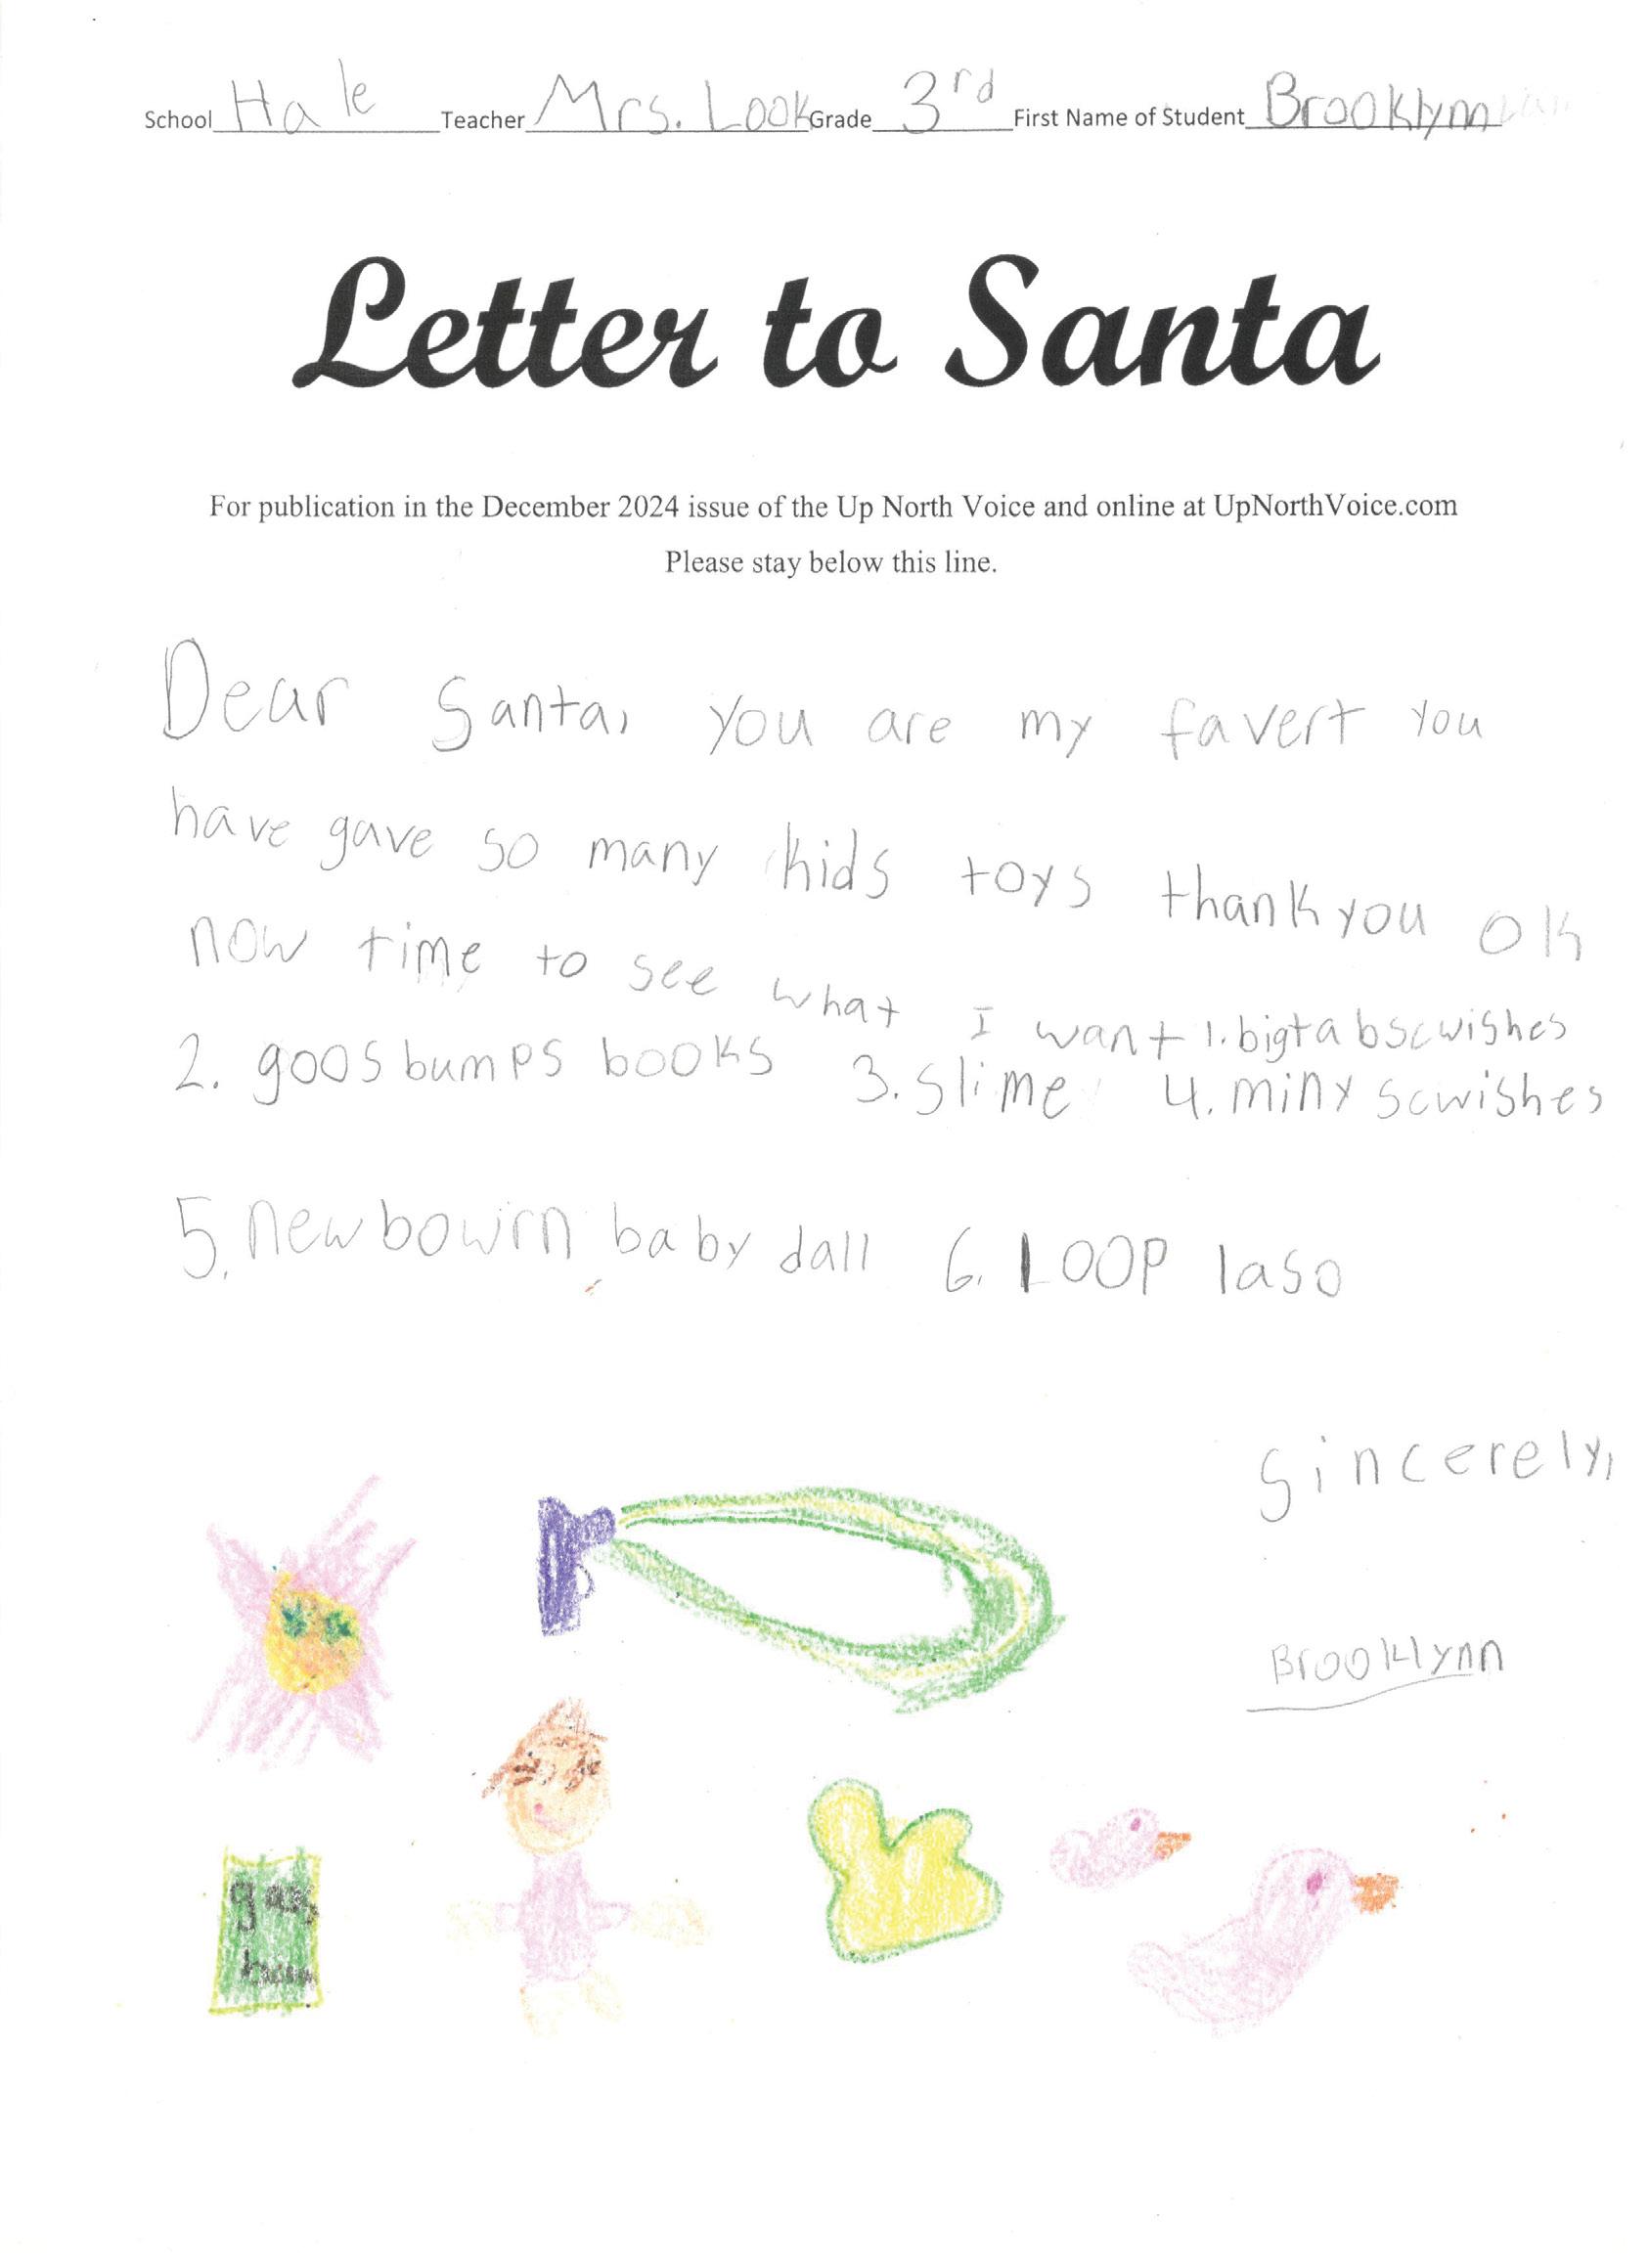 School Hale Teacher Mrs. Look Grade 3rd First Name of Student Brooklynn
Letter to Santa
For publication in the December 2024 issue of the Up North Voice and online at UpNorthVoice.com
Please stay below this line.
Dear Santa, you are my favert you
have gave so many kids toys thank you ok
now time to see what I want 1. bigtabscwishes
2. goosbumps books 3. slime 4. miny scwishes
5. newbowrn baby dall 6. LOOP laso
Sincerely,
Brooklynn